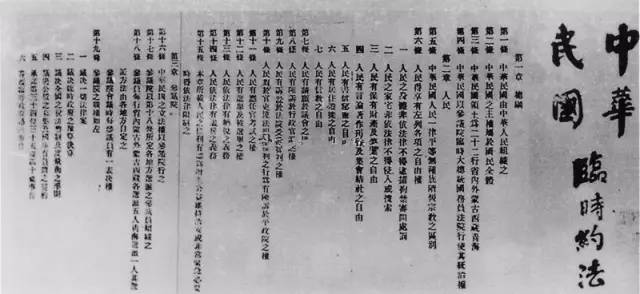 中華民國 臨時約法
第一章 總綱
第一條 中華民國由中華人民組織之
第二條 中華民國之主權屬於國民全體
第三條 中華民國領土為二十二行省內外蒙古西藏青海
第四條 中華民國以參議院臨時大總統國務員法院行使其統治權
第二章 人民
第五條 中華民國人民一律平等無種族階級宗教之區別
第六條 人民得享有左列各項之自由權
一 人民之身體非依法律不得逮捕拘禁審問處罰
二 人民之家宅非依法律不得侵入或搜索
三 人民有保有財產及營業之自由
四 人民有言論著作刊行及集會結社之自由
五 人民有書信秘密之自由
六 人民有居住遷徙之自由
七 人民有信教之自由
第七條 人民有請願於議會之權
第八條 人民有陳訴於行政官署之權
第九條 人民有訴訟於法院受其審判之權
第十條 人民對於官吏違法損害權利之行為有陳訴於平政院之權
第十一條 人民有應任官考試之權
第十二條 人民有選舉及被選舉之權
第十三條 人民依法律有納稅之義務
第十四條 人民依法律有服兵之義務
第十五條 本章所載人民之權利有認為增進公益維持治安或非常緊急必要
時得依法律限制之
第三章 參議院
第十六條 中華民國之立法權以參議院行之
第十七條 參議院以第十八條所定各地方選派之參議員組織之
第十八條 參議員每行省內蒙古外蒙古西藏各選派五人青海選派一人其選
派方法由各地方自定之
參議院會議時每參議員有一表決權
第十九條 參議院之職權如左
一 議決一切法律案
二 議決臨時政府之預算決算
三 議決全國之稅法幣制及度量衡之準則
四 議決公債之募集及國庫有負擔之契約
五 承諾第三十四條三十五條四十條事件
六